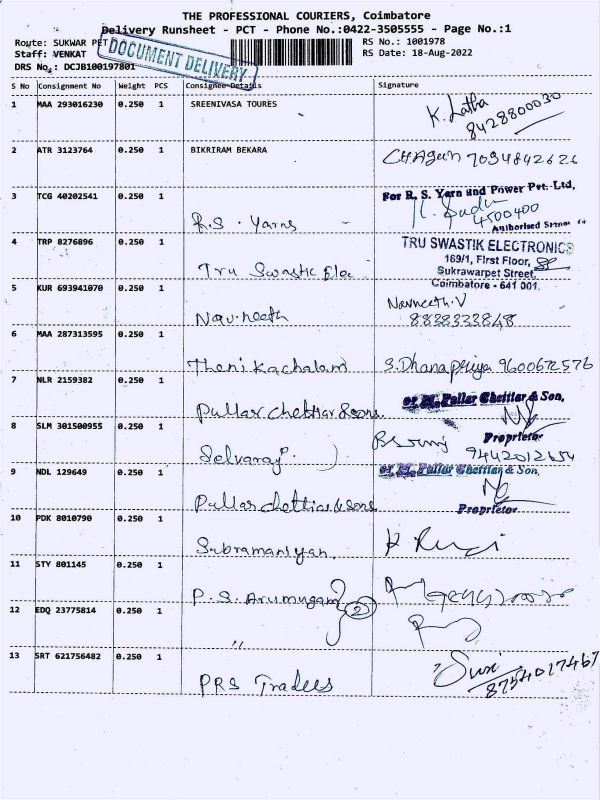 THE PROFESSIONAL COURIERS, Coimbatore
Delivery Runsheet - PCT - Phone No.:0422-3505555 - Page No.:1
Route: SUKWAR PET
Staff: VENKAT
DRS No.: DCJB100197801
DOCUMENT DELIVERY
RS No.: 1001978
RS Date: 18-Aug-2022
S No Consignment No Weight PCS Consignee Details Signature
1 MAA 293016230 0.250 1 SREENIVASA TOURES
K. Latha
8428800030
2 ATR 3123764 0.250 1 BIKRIRAM BEKARA
7094842626
3 TCG 40202541 0.250 1
R.S. Yarns
For R. S. Yarn and Power Pvt. Ltd,
4500400
Authorised
4 TRP 8276896 0.250 1
Tru Swastic Elec
TRU SWASTIK ELECTRONICS
169/1, First Floor,
Sukrawarpet Street,
Coimbatore - 641 001.
5 KUR 693941070 0.250 1
Nav.neeth
Navneeth.V
8838333848
6 MAA 287313595 0.250 1
Theni kachalam
S. Dhanapriya 9600672576
7 NLR 2159382 0.250 1
Pullar chettiar & sons.
Pullar Chettiar & Son,
Proprietor
8 SLM 301500955 0.250 1
Selvaraj.
9442012654
9 NDL 129649 0.250 1
Pullar chettiar & sons
Pullar Chettiar & Son,
Proprietor
10 PDK 8010790 0.250 1
Subramaniyan.
11 STY 801145 0.250 1
P. S. Arumugam
2
12 EDQ 23775814 0.250 1
"
13 SRT 621756482 0.250 1
PRS Trades
8754017467